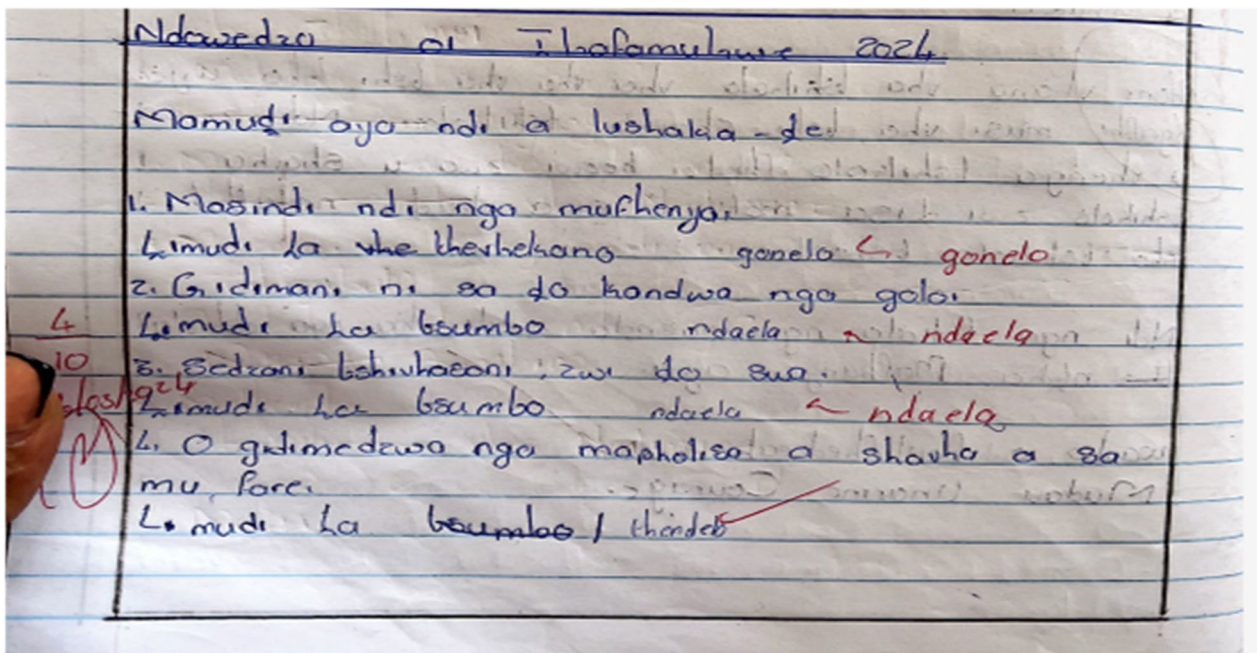 Ndowedzo 01 Ṱhafamuhwe 2024
Mamuḓi ayo ndi a lushaka-ḓe
1. Masindi ndi nga mufhenya.
Limudi ḽa vhe thevhekano gonelo gonelo
2. Gidimani ni sa ḓo kandwa nga goloi
4/10 Limudi ḽa tsumbo ndaela ndaela
3. Sedzani tshivhaeani, zwi ḓo swa.
Limudi ḽa tsumbo ndaela ndaela
4. O gidimedzwa nga mapholisa a shavha a sa
mu fare.
Limudi ḽa tsumbo /